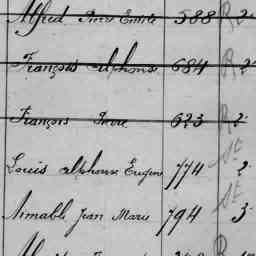 Alfred Pierre Emile 588 R 2
François Alphonse 684 R 2
François Pierre 623 R 2
Louis Alphonse Eugène 774 2
Aimable Jean Marie 794 3